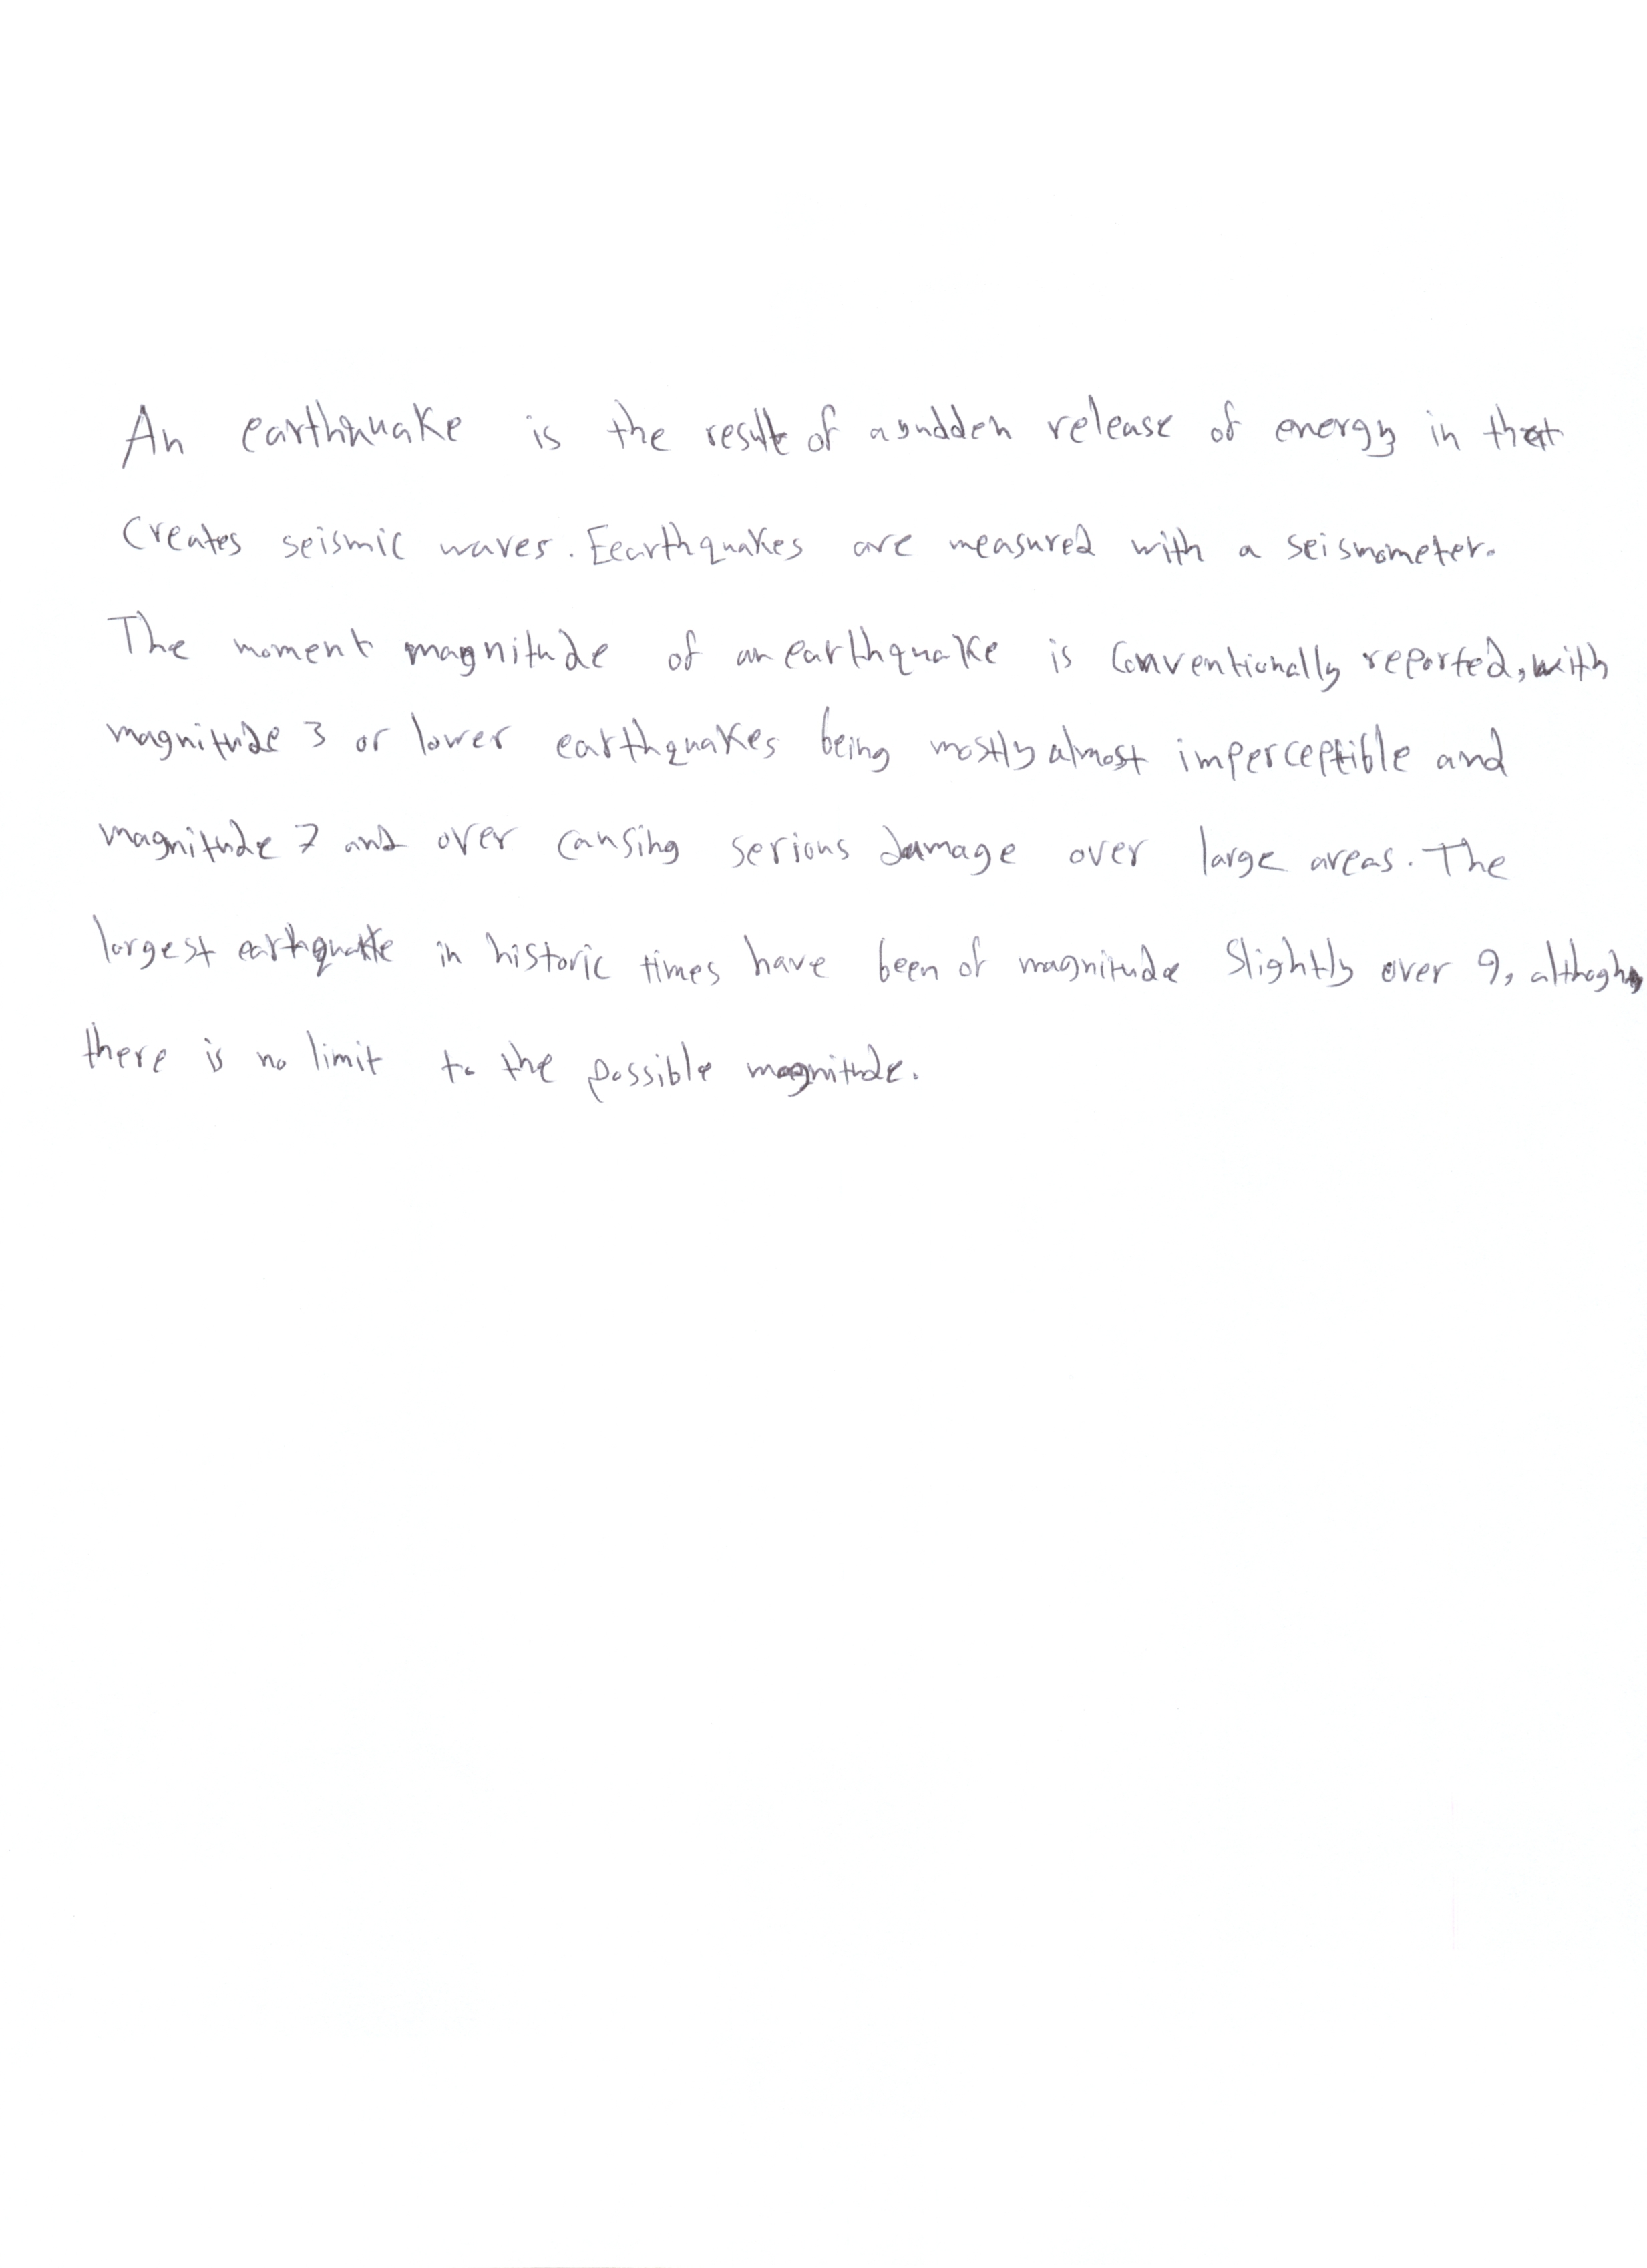 An earthquake is the result of a sudden release of energy in that
Creates seismic waves. Eearthquakes are measured with a seismometer.
The moment magnitude of an earthquake is Conventionally reported, with
magnitude 3 or lower earthquakes being mostly almost imperceptible and
magnitude 7 and over causing serious damage over large areas. The
largest earthquake in historic times have been of magnitude Slightly over 9, althogh
there is no limit to the possible magnitude.